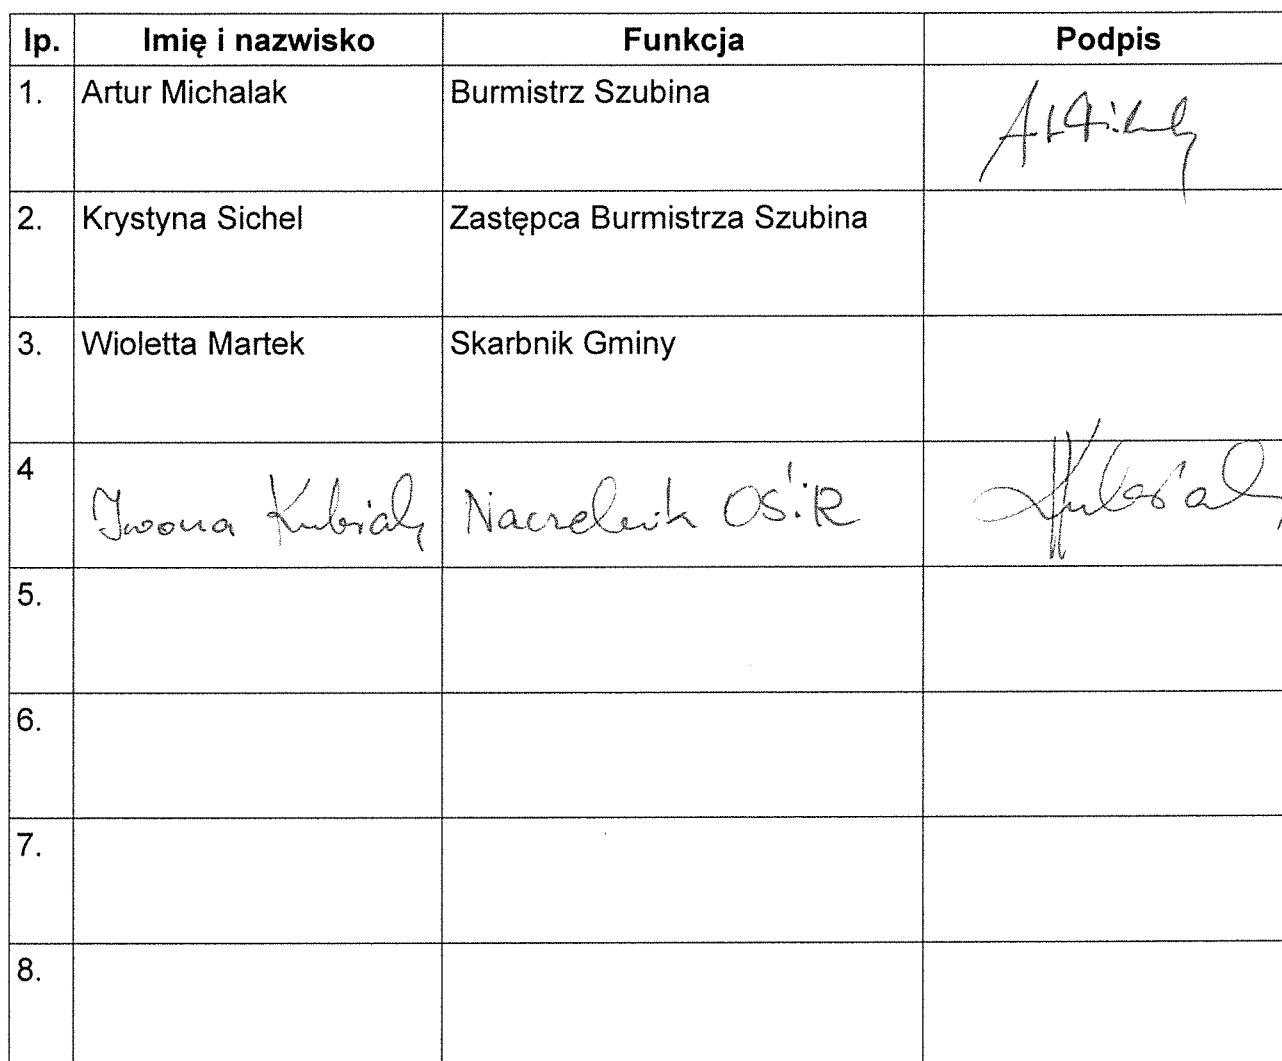 lp. Imię i nazwisko Funkcja Podpis
1. Artur Michalak Burmistrz Szubina
2. Krystyna Sichel Zastępca Burmistrza Szubina
3. Wioletta Martek Skarbnik Gminy
4 Iwona Kubiak Naczelnik OŚiR Kubiak
5.
6.
7.
8.